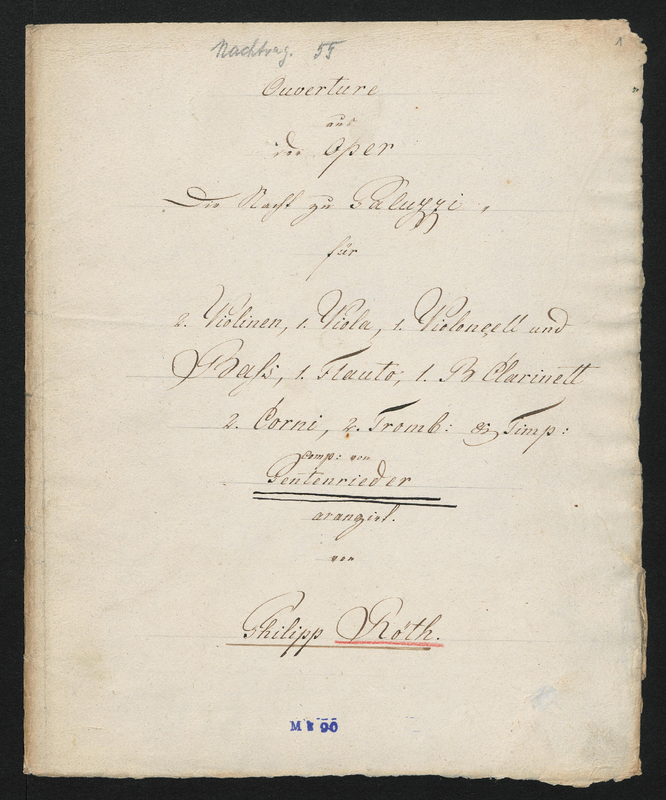 Nachtrag. 55
1
Ouverture
aus
der Oper
Die Nacht zu Paluzzi
für
2. Violinen, 1. Viola, 1. Violoncell und
Bass, 1. Flauto, 1. B Clarinett
2. Corni, 2. Tromb: & Timp:
comp: von
Pentenrieder
arangirt.
von
Philipp Röth.
M 90